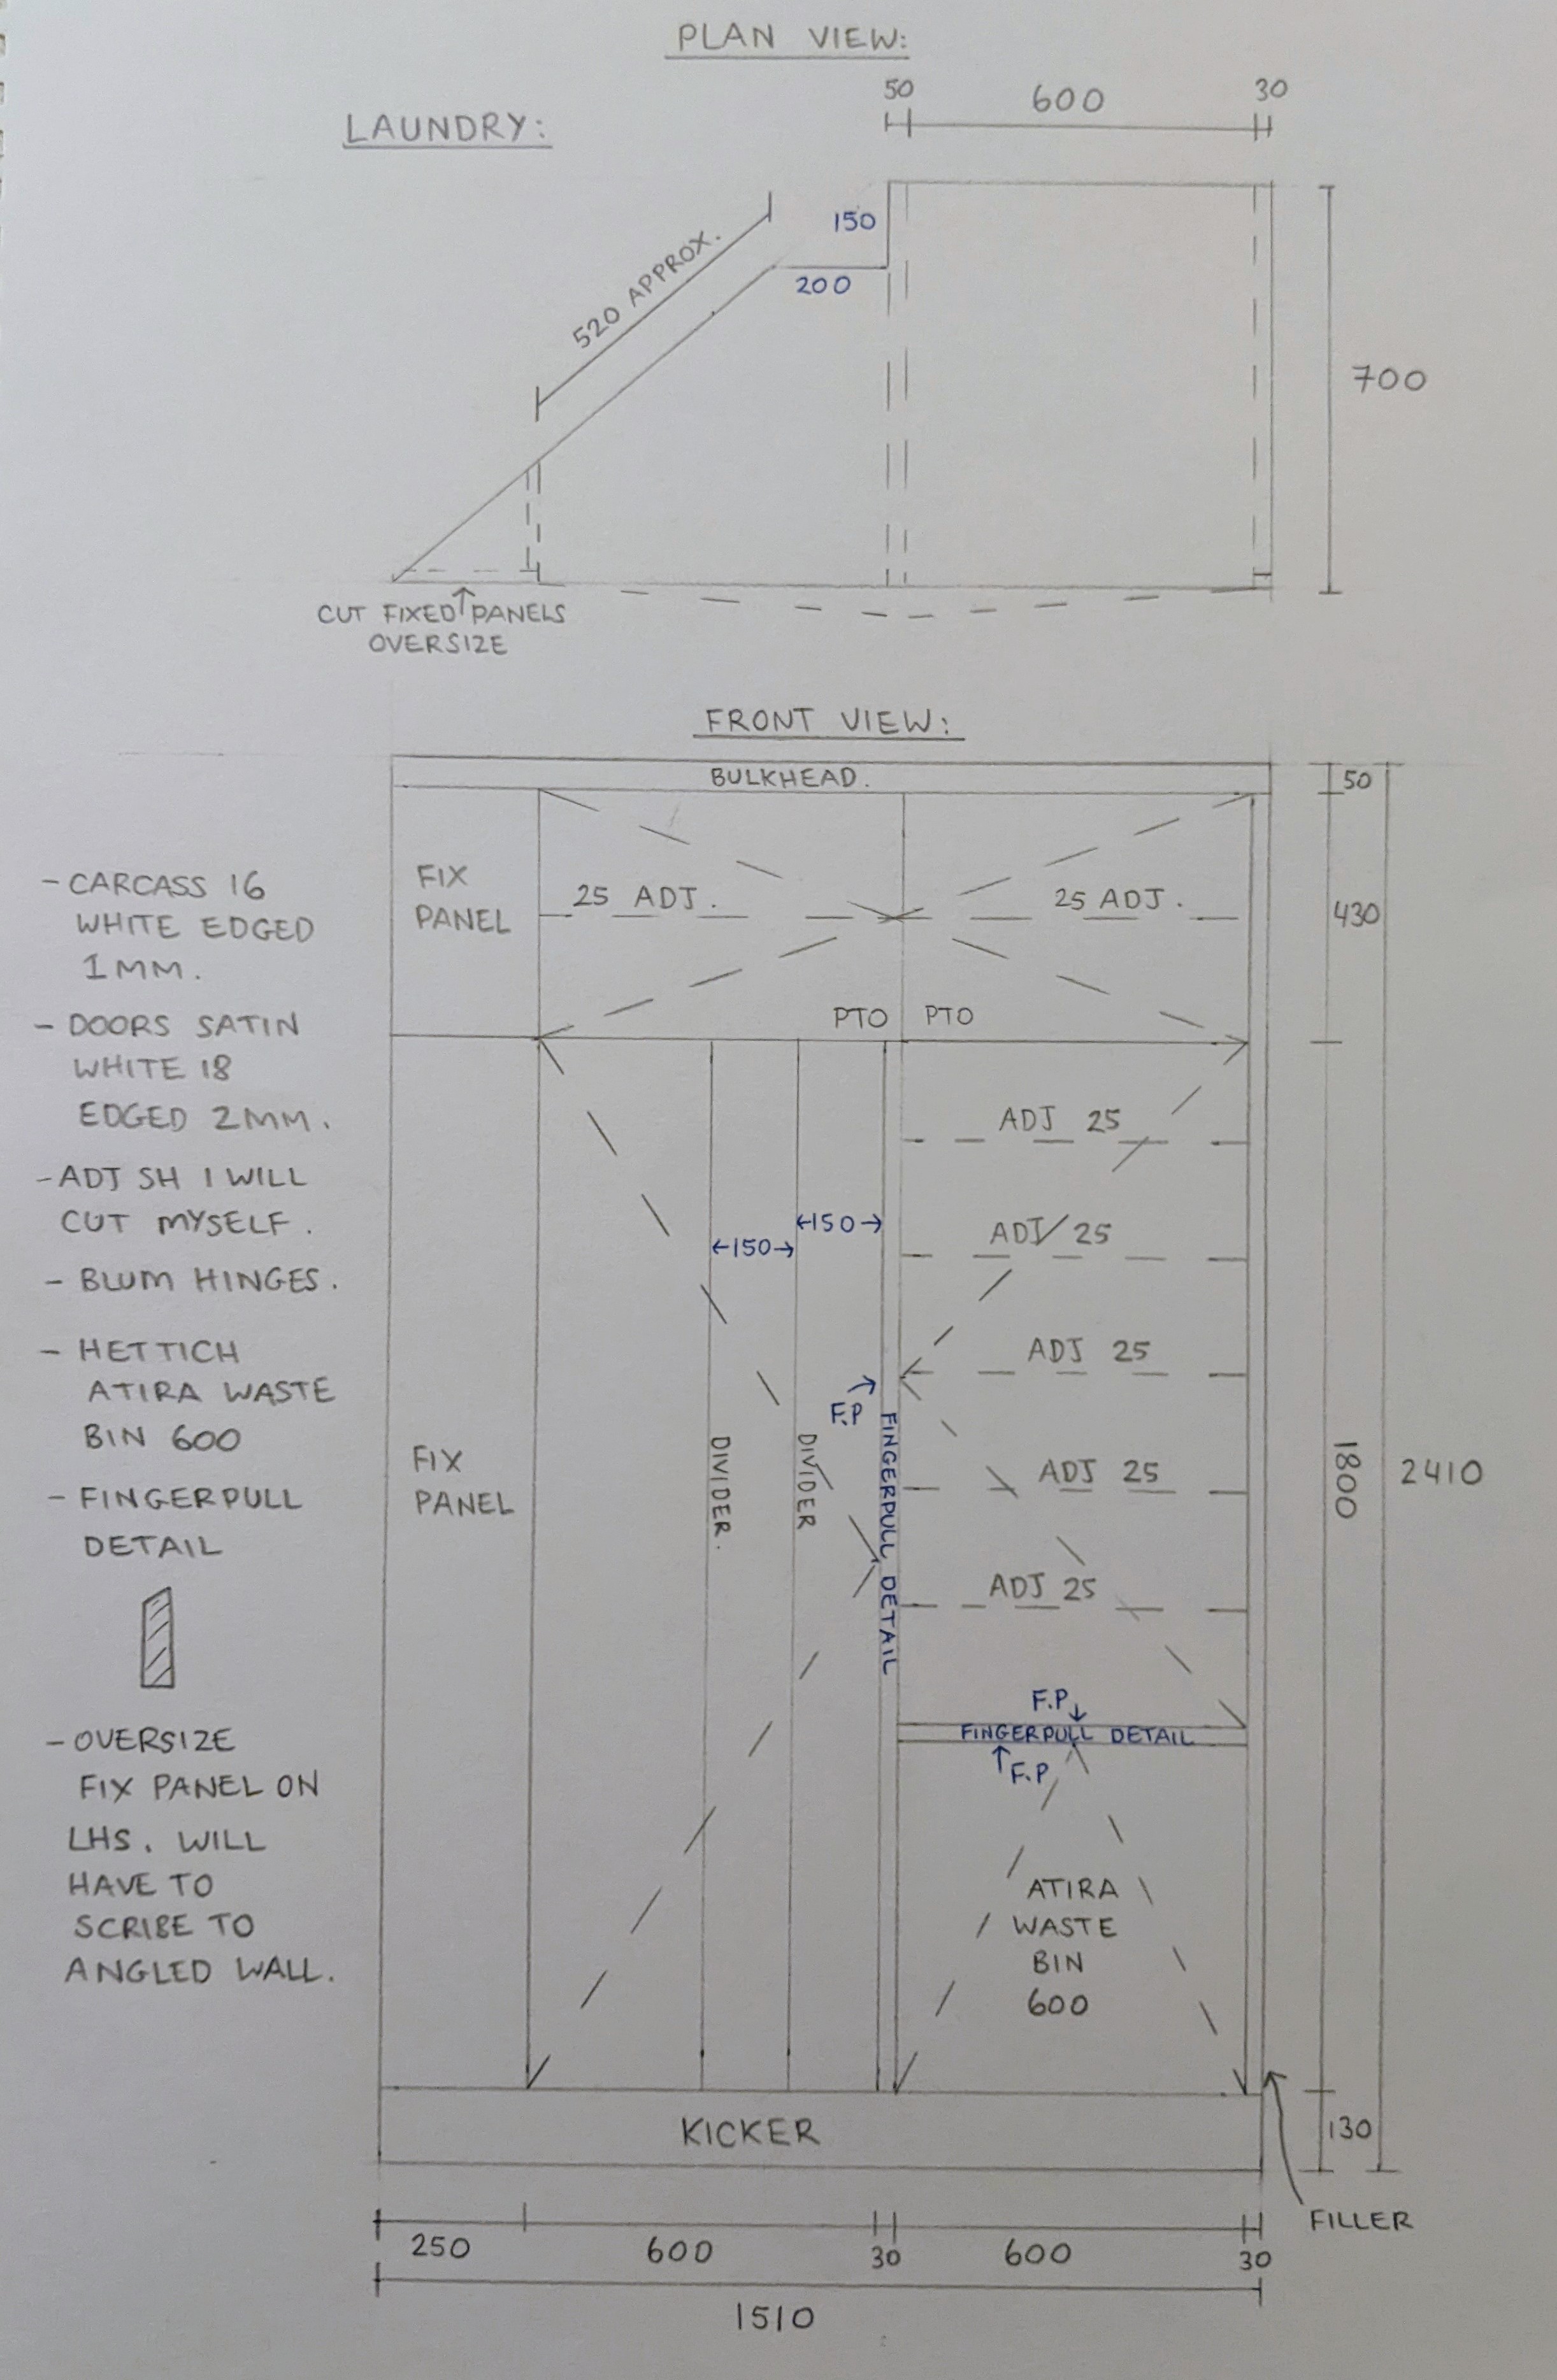 PLAN VIEW:
LAUNDRY:
50
600
30
520 APPROX.
150
200
700
CUT FIXED PANELS
OVERSIZE
FRONT VIEW:
BULKHEAD.
50
FIX
PANEL
25 ADJ.
25 ADJ.
430
PTO
PTO
- CARCASS 16
WHITE EDGED
1MM.
- DOORS SATIN
WHITE 18
EDGED 2MM.
- ADJ SH I WILL
CUT MYSELF.
- BLUM HINGES.
- HETTICH
ATIRA WASTE
BIN 600
- FINGERPULL
DETAIL
- OVERSIZE
FIX PANEL ON
LHS. WILL
HAVE TO
SCRIBE TO
ANGLED WALL.
ADJ 25
ADJ 25
ADJ 25
ADJ 25
ADJ 25
150
150
F.P
FINGERPULL DETAIL
DIVIDER.
DIVIDER
FIX
PANEL
1800
2410
F.P
FINGERPULL DETAIL
F.P
ATIRA
WASTE
BIN
600
KICKER
130
FILLER
250
600
30
600
30
1510